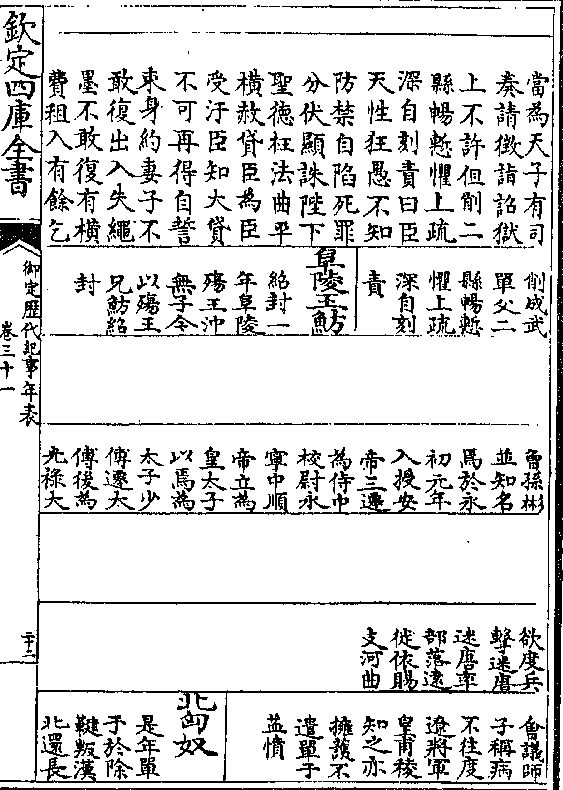 當為天子有司
奏請徵詣詔獄
上不許但削二
縣暢慙懼上疏
深自刻責曰臣
天性狂愚不知
防禁自陷死罪
分伏顯誅陛下
聖德枉法曲平
橫赦貸臣為臣
受汙臣知大貸
不可再得自誓
束身約妻子不
敢復出入失繩
墨不敢復有橫
費租入有餘乞
削成武
單父二
縣暢慙
懼上疏
深自刻
責
阜陵王魴
紹封一
年阜陵
殤王沖
無子令
以殤王
兄魴紹
封
曾孫彬
並知名
焉於永
初元年
入授安
帝三遷
為侍中
校尉永
寧中順
帝立為
皇太子
以焉為
太子少
傅遷太
傅後為
光祿大
欲度兵
擊迷唐
迷唐率
部落遠
徙依賜
支河曲
會議師
子稱病
不往度
遼將軍
皇甫稜
知之亦
擁護不
遣單于
益憤
北匈奴
是年單
于於除
鞬叛漢
北還長
欽定四庫全書
御定歷代紀事年表
卷三十一
二十二